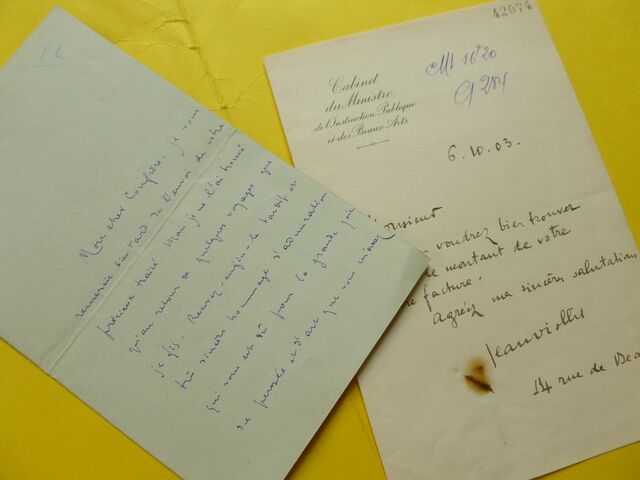 Pl
Mon cher Confrère, je vous
remercie si tard de l'envoi de votre
précieux traité. Mais je ne l'ai trouvé
qu'au retour de quelques voyages que
je fis. Recevez enfin le tardif et
très sincère hommage d'admiration
qui vous est dû pour la grande
de pensée et d'art que vous
42074
Cabinet
du Ministre
de l'Instruction Publique
et des Beaux Arts
Mt 16 20
G 284
6.10.03.
Monsieur
voudrez bien trouver
le montant de votre
facture.
Agréez ma sincère salutation
Jean Viollis
14 rue de Bea